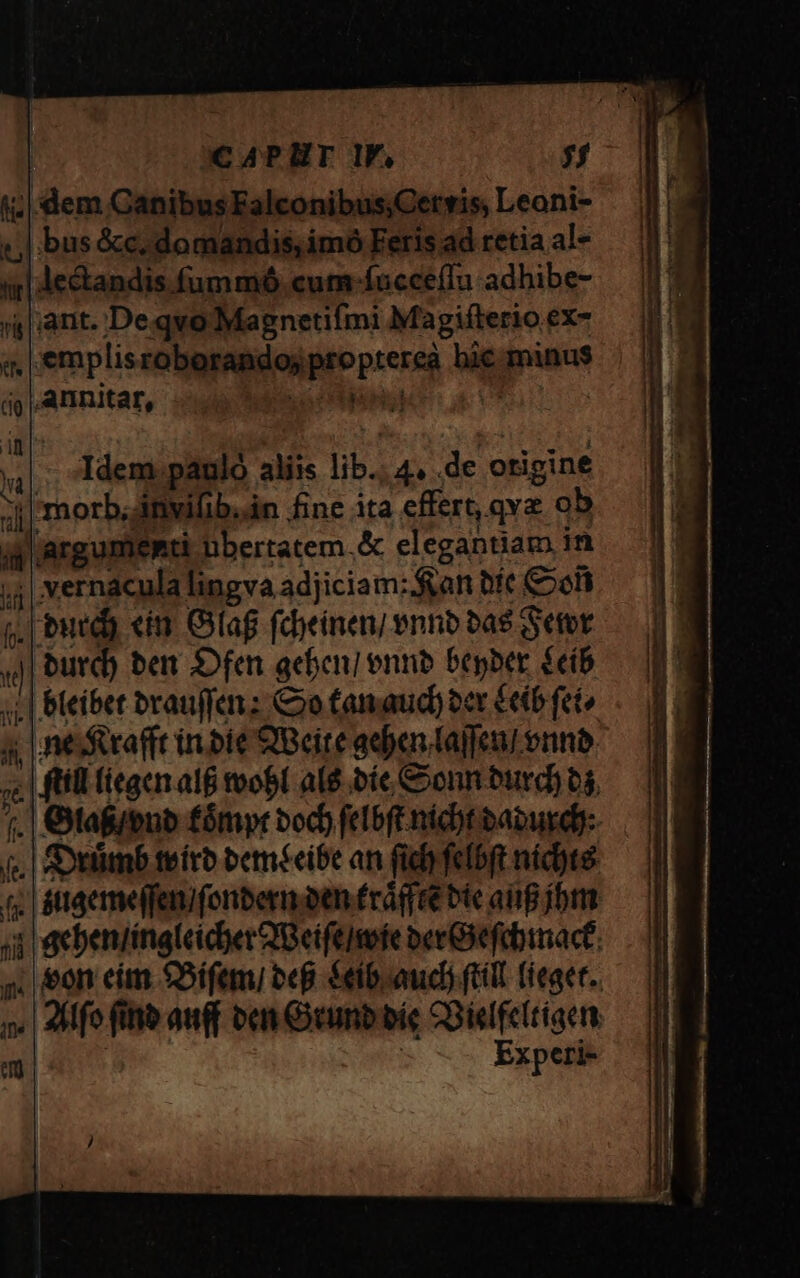 CAPUT IV. 55
dem Canibus Falconibus, Cervis, Leoni-
bus &c. domandis, imò Feris ad retia al-
lectandis ſummô cum ſucceſſu adhibe-
ant. De qvo Magnetiſmi Magiſterio ex-
emplis roborando, propterea hic minus
annitar,
Idem paulò aliis lib. 4. de origine
morb. inviſib. in fine ita effert, qvæ ob
argumenti ubertatem & elegantiam in
vernacula lingva adjiciam: Kan die Soñ
durch ein Glaß ſcheinen/ vnnd das Fewr
durch den Ofen gehen/ vnnd beyder Leib
bleibet drauſſen: So kan auch der Leib ſei⸗
ne Krafft in die Weite gehen laſſen/ vnnd
ſtill liegen alß wohl als die Sonn durch dz
Glaß/ vnd kömpt doch ſelbſt nicht dadurch:
Drümb wird dem Leibe an ſich ſelbſt nichts
zugemeſſen/ ſondern den kräfftẽ die auß jhm
gehen/ ingleicher Weiſe/ wie der Geſchmack
von eim Biſem/ deß Leib auch ſtill lieget.
Alſo ſind auff den Grund die Vielfeltigen
Experi-